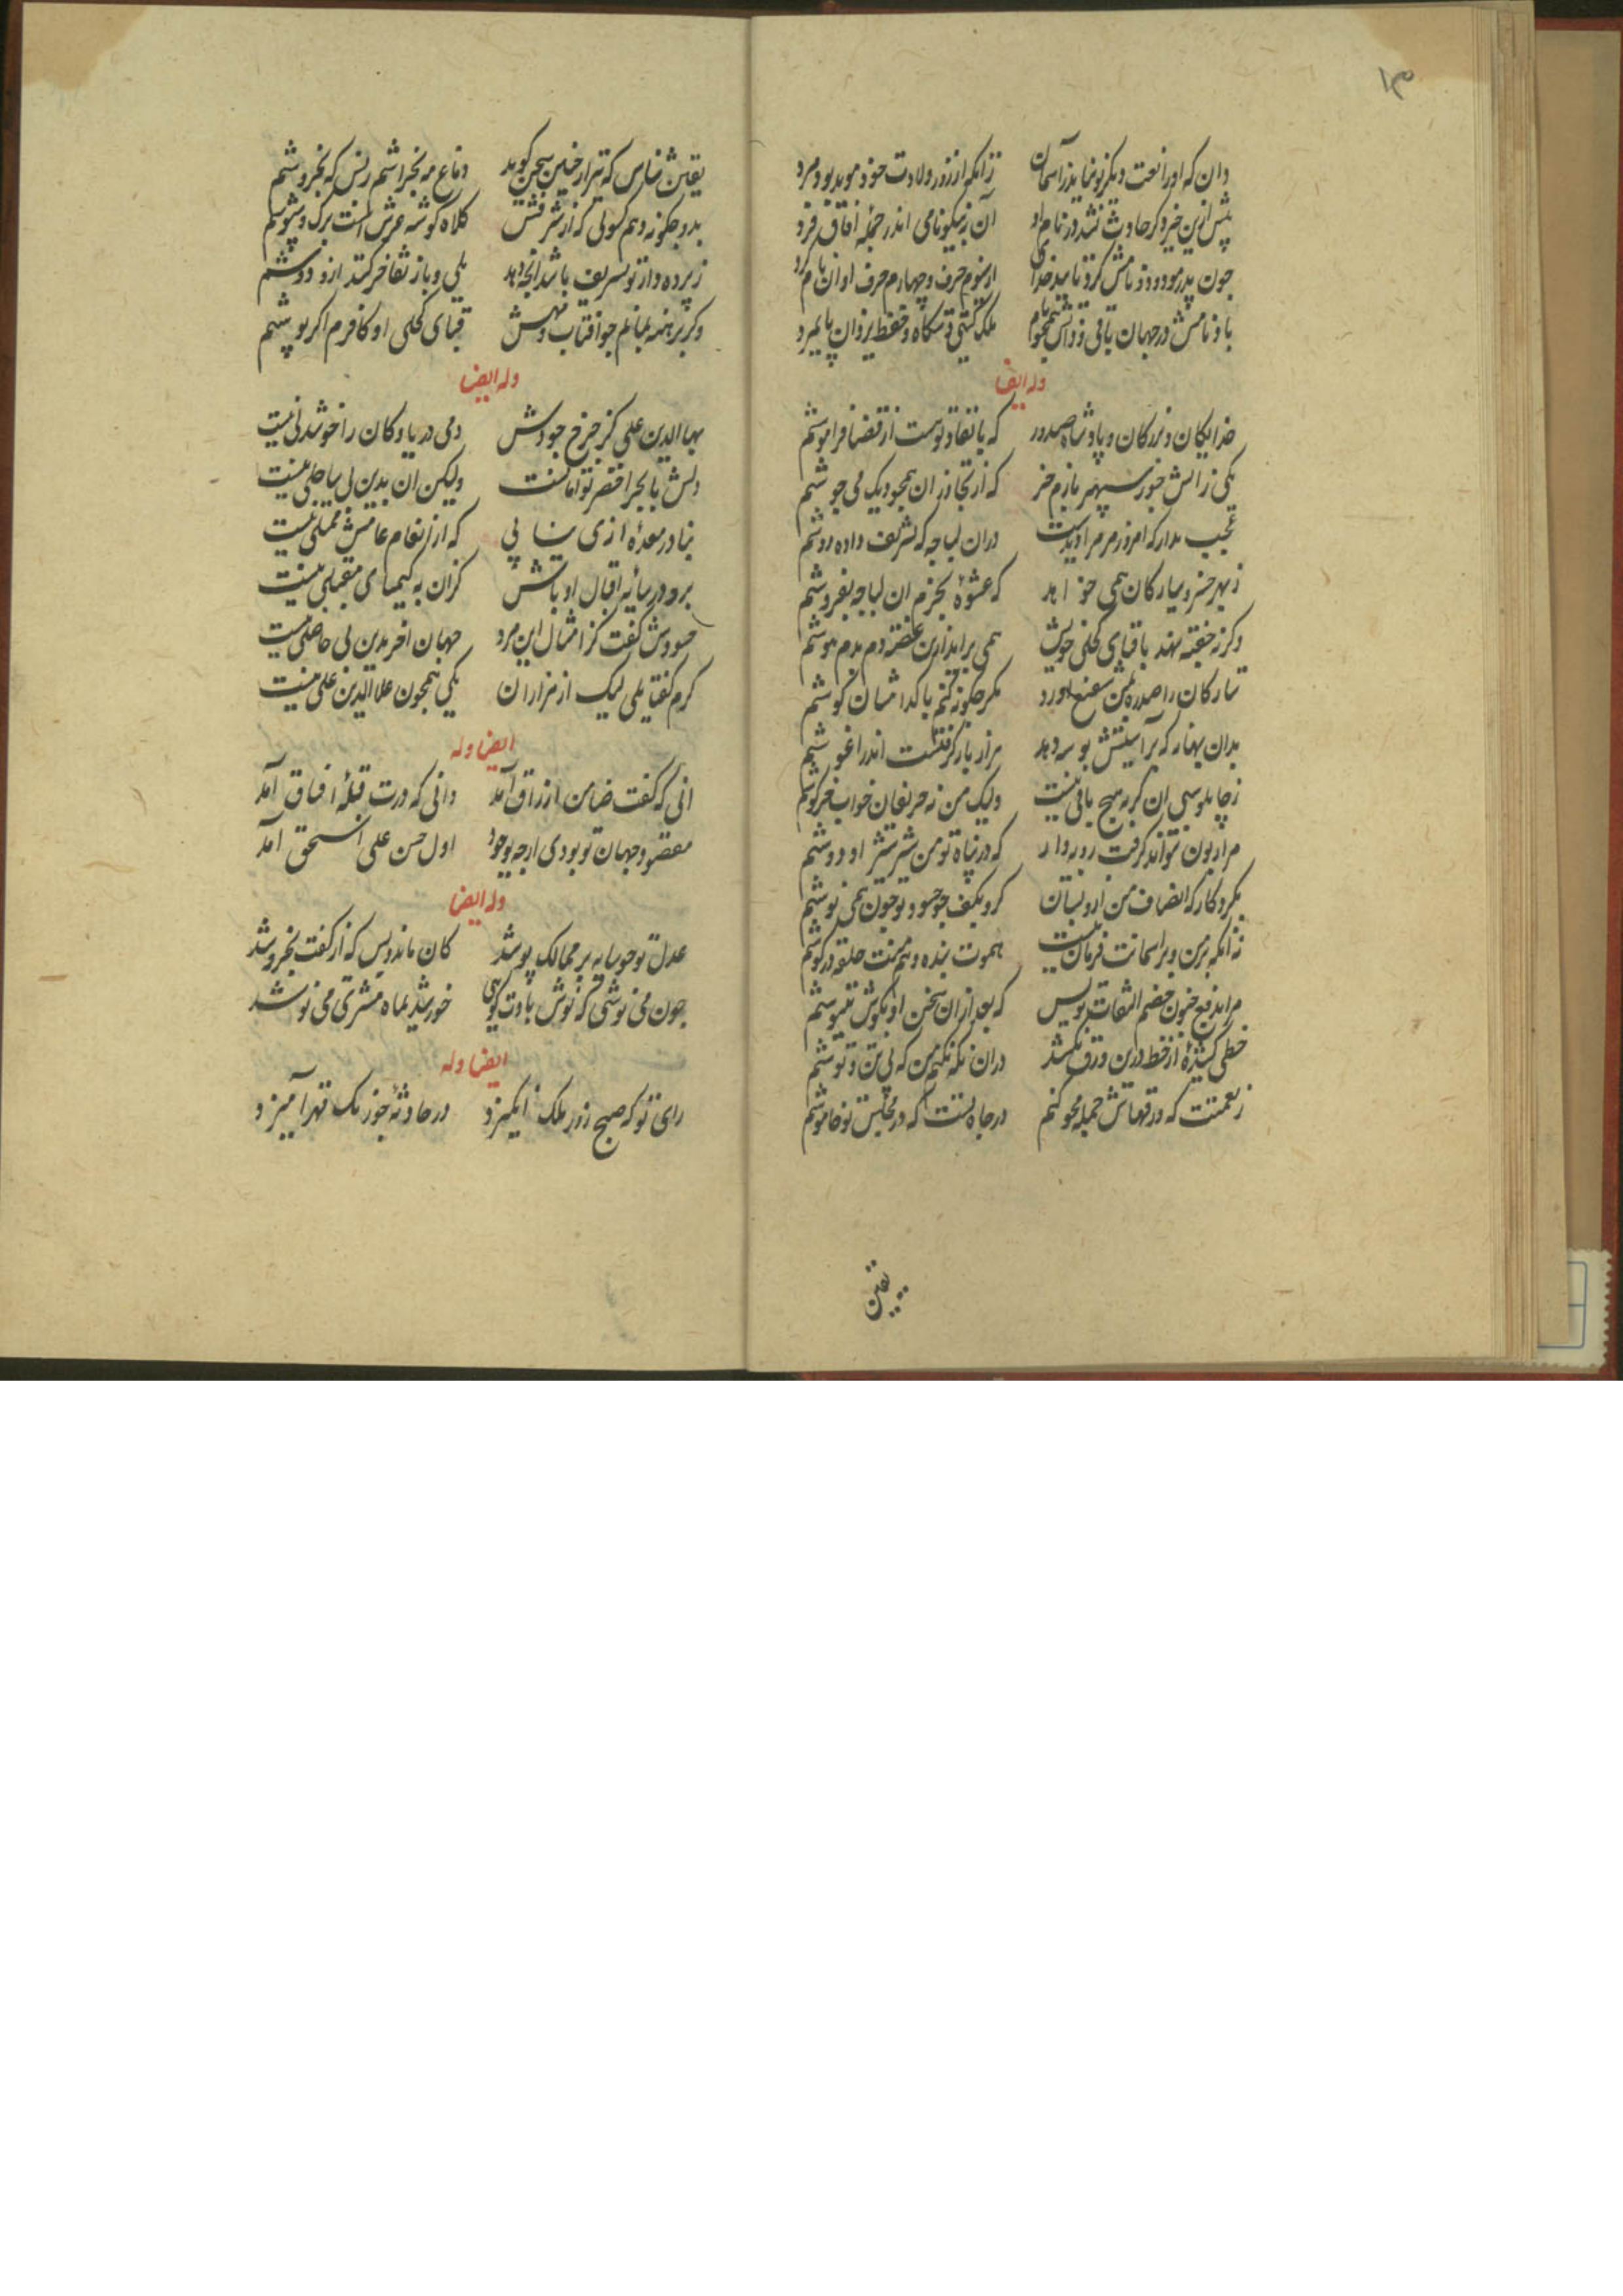 ۱۳
دان که او را نعت دیگر تو نماید ز آسمان زانکه از روز ولادت خود موید بود مرد
پس ازین خیر و کر حادث نشد در نام او آن ز نیکونامی اندر جمله آفاق فرد
چون پدر مودود نامش کرد تایید خدای از سوم حرف و چهارم حرف او آن نام کرد
باد نامش در جهان باقی و ذاتش ملک کیتی دستکاه و حفظ یزدان پایمرد
وله ایضا
خدایکان بزرکان و پادشاه صدور که با تفقد توست از قضا فراموشم
یکی ز آتش جور سپهر بازم خر که از تجاوز آن همچو دیک می جوشم
عجب مدار که امروز مر مرا دیدست دران لباجه که تشریف داده دوشم
ز بهر خسرو سیارکان همی خواهد که عشوه بخرم ان لباجه بفروشم
وکرنه خفیه نهد با قبای کحلی خویش همی برآید ازین غصه دم بدم هوشم
ستارکان را صدره شفیع آورد مکر چکونه کنم با کدامشان کوشم
بدان بهانه که بر آستینش بوسه دهد هزار بار کرفتست اندر آغوشم
ز چاپلوسی ان کربه هیچ باقی نیست ولیک من نه حریفان خواب خرکوشم
مرا زبون نتواند کرفت روبه وار که در پناه تو من شیر شرزه را دوشم
بکرد کار که انصاف من ازو بستان کر و بکیف چو حسود تو خون همی نوشم
نه آنکه بر من و بر آسمانت فرمان نیست همو ت بنده و هم منت حلقه در کوشم
مرا بدفع خون خصم التفات بویس که بعد ازان سخن او بکوش ننیوشم
خطی کشیده از خط درین ورق بکشد دران نکه نکنم من که بی تن و توشم
ز نعمتت که ورقهاش جمله محو کنم در جاه تست که در مجلس تو خاموشم
یقین
یقین شناس که تیر ار چنین سخن کوید دماغ مه بخراشم زبس که بخروشم
بدو چکونه دهم کسوتی که از شرفش کلاه کوشه عرش است ترک شبپوشم
ز پرده دار تو تشریف باشد انجا دهد بلی و باز تفاخر کند ازو دوشم
وکر برهنه بمانم چو افتاب و مهش قبای کحلی او کافرم اکر پوشم
وله ایضا
بهاالدین علی کز خرج جودش دمی دریا و کان را خوشدلی نیست
دلش با بحر اخضر توامانست ولیکن آن بدین بی ساحلی نیست
بنا در معده آزی نیابی که از انعام عامش ممتلی نیست
برو در سایه اقبال او باش کزان به کیمیای مقبلی نیست
حسودش گفت کز امثال این مرد جهان آخر بدین بی حاصلی نیست
کرم کفتا بلی لیک از هزاران یکی همچون علاالدین علی نیست
ایضا وله
آنی که کفت ضامن ارزاق آمد دانی که درت قبله آفاق آمد
مقصود جهان تو بودی ارچه بوجود اول حسن علی اسحق آمد
وله ایضا
عدل تو چو سایه بر ممالک پوشد کان ماند و بس که از کفت بخروشد
چون می نوشی که نوش بادت کویی خورشید بماه مشتری می نوشد
ایضا وله
رای تو که صبح روز ملک انکیزد در حادثه جو رنک قهر آمیزد